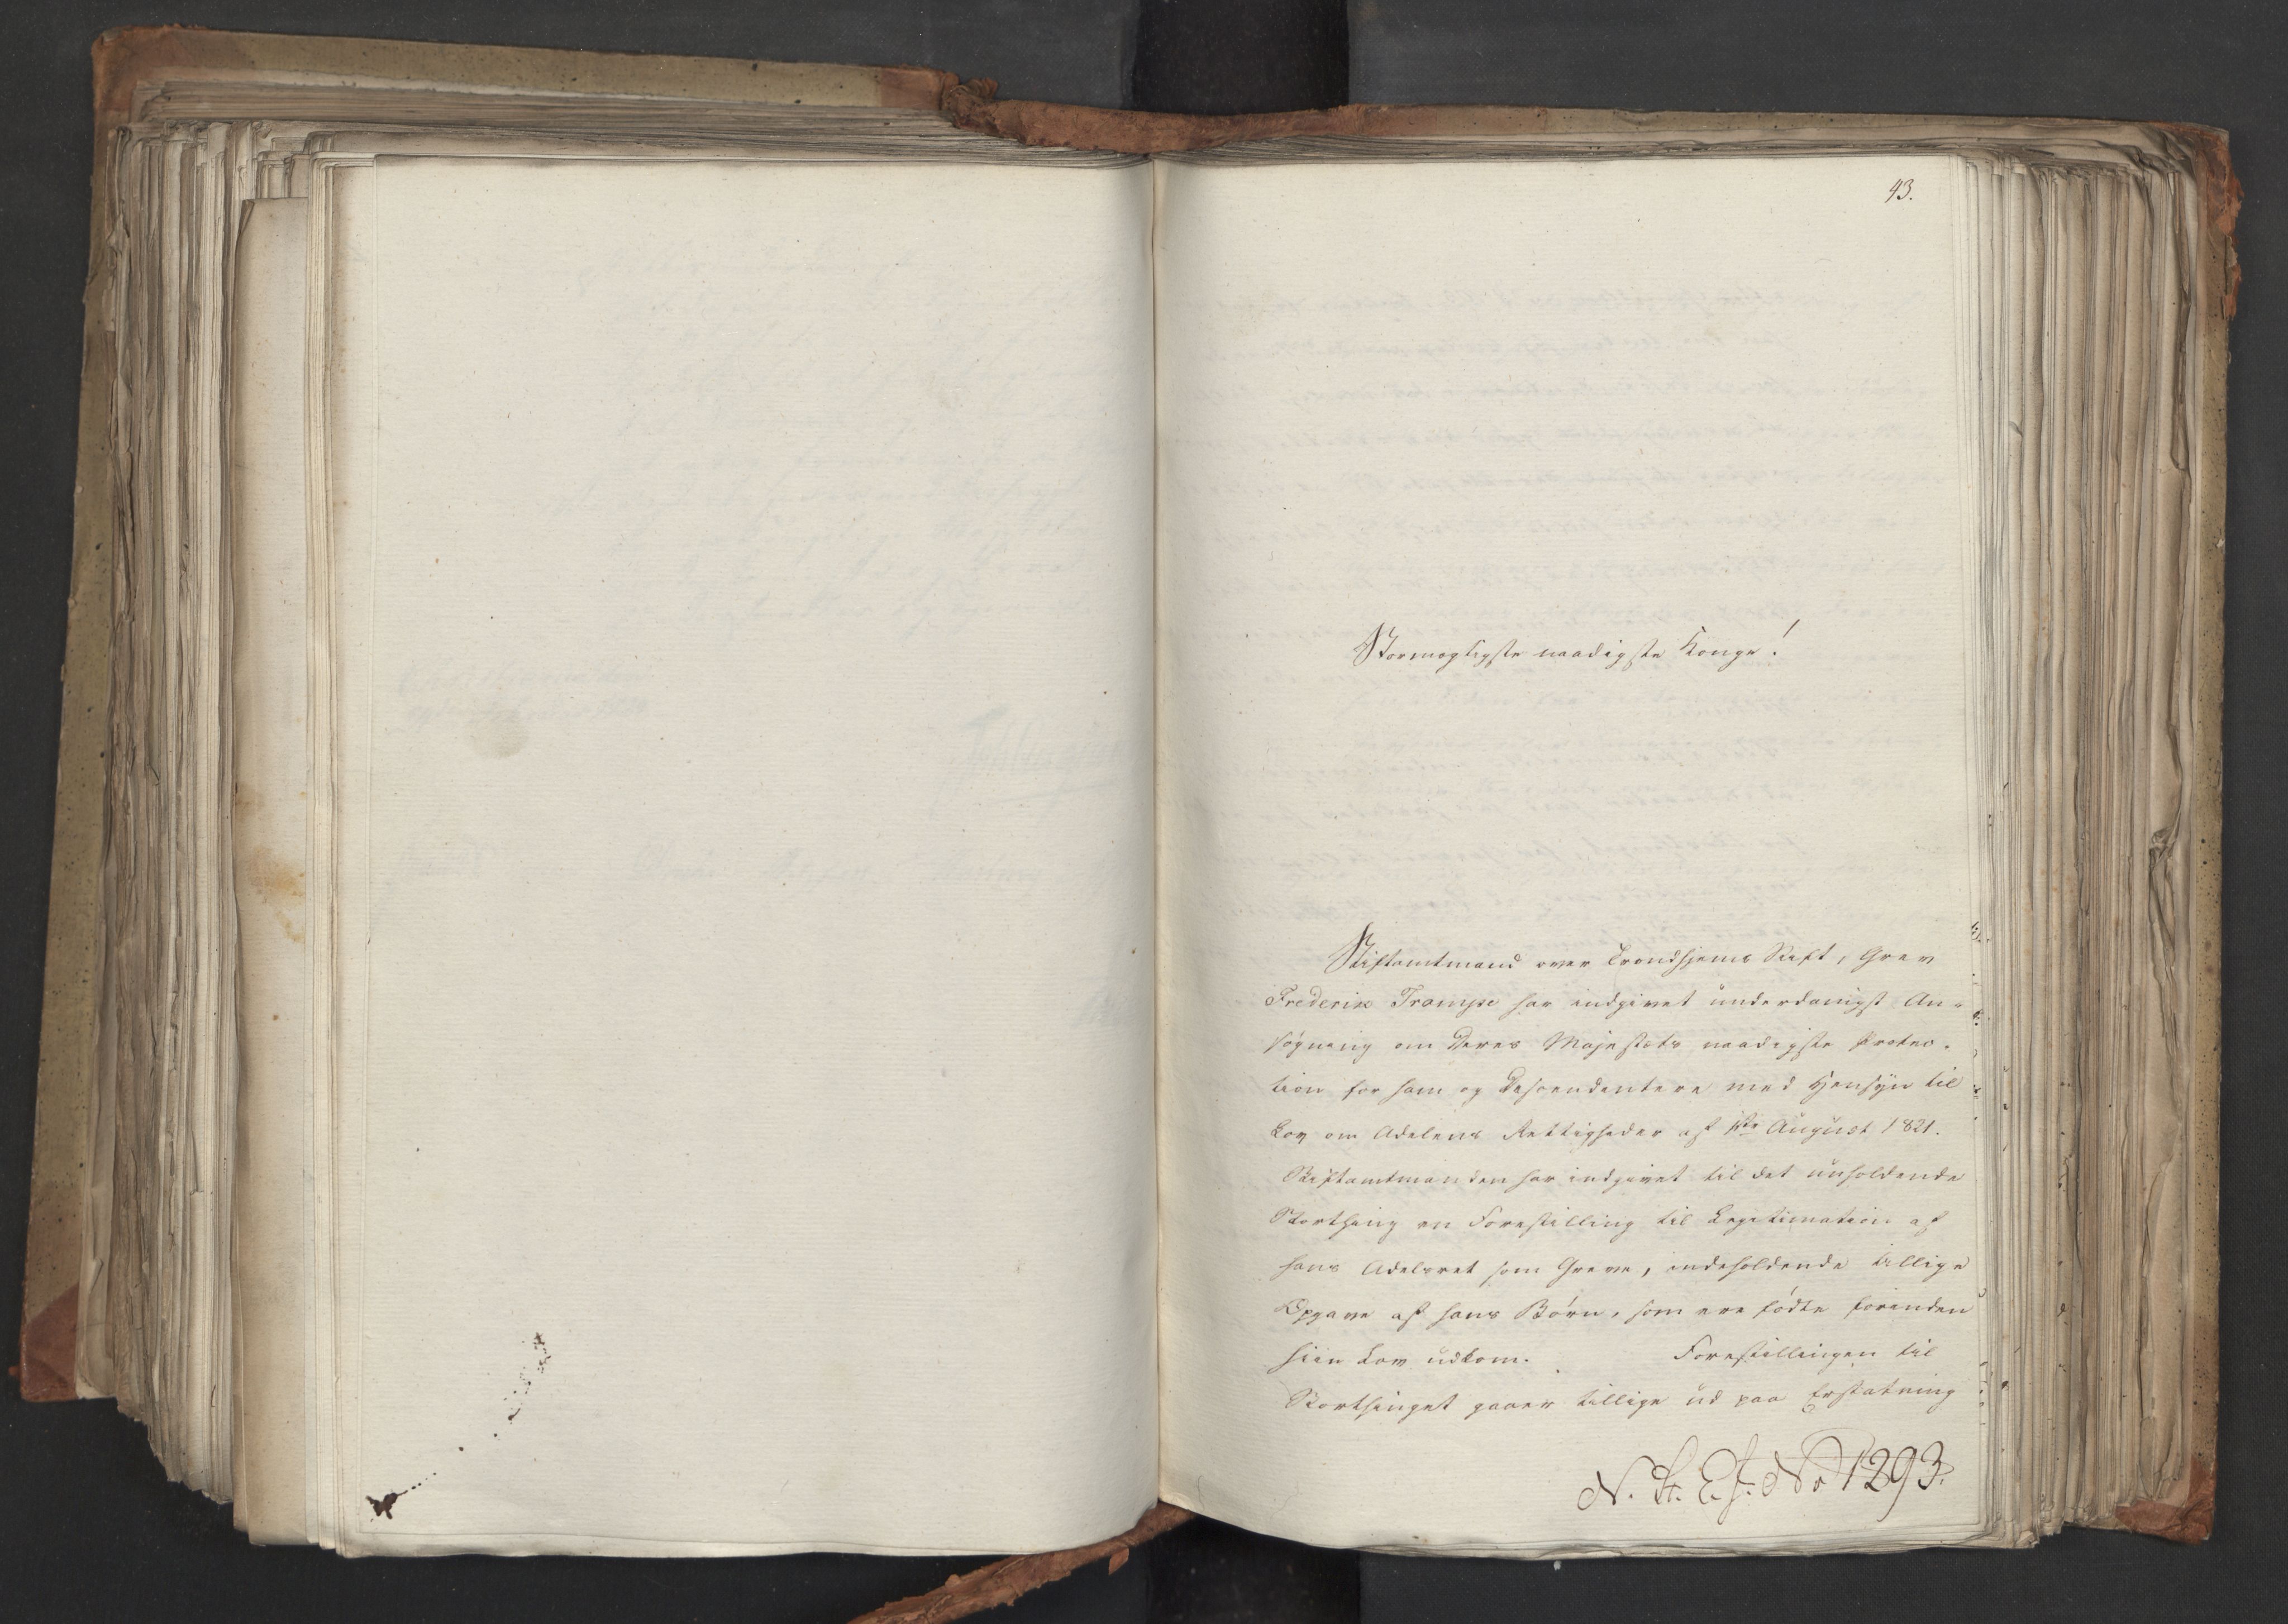 43.
Stormægtigste naadigste Konge!
Stiftamtmand over Trondhjems Stift, Grev
Frederik Trampe har indgivet underdanigst An-
søgning om Deres Majestæts naadigste Protec-
tion for ham og Descendentere med Hensyn til
Lov om Adelens Rettigheder af 1ste August 1821.
Stiftamtmanden har indgivet til det nuholdende
Storthing en Forestilling til Legitimation af
hans Adelsret som Greve, indeholdende tillige
Opgave af hans Børn, som ere fødte forenden
hiin Lov udkom. Forestillingen til
Storthinget gaaer tillige ud paa Erstatning
N. St. E. J. No 1293.